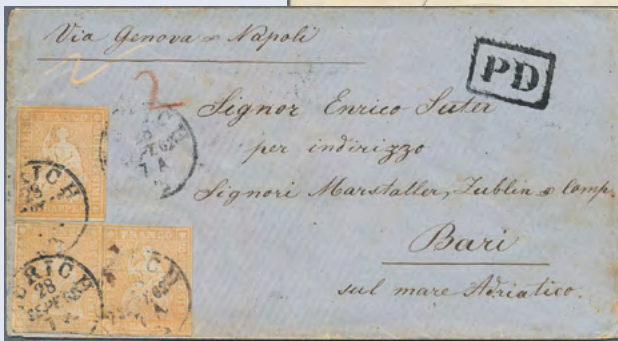 Via Genova e Napoli
2
PD
Signor Enrico Suter
per indirizzo
Signori Marstaller, Zublin & Comp.
Bari
sul mare Adriatico.
FRANCO
RICH
28
RICH
28
FRANCO